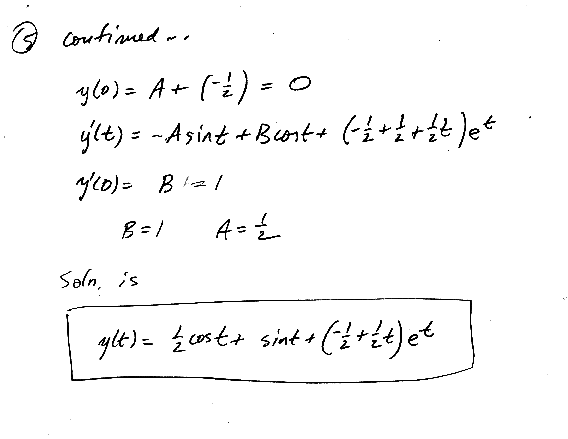 ⑤ continued...
y(0) = A + (-1/2) = 0
y'(t) = -A sint + B cost + (-1/2 + 1/2 + 1/2 t) e^t
y'(0) = B = 1
B = 1 A = 1/2
Soln. is
y(t) = 1/2 cost + sint + (-1/2 + 1/2 t) e^t